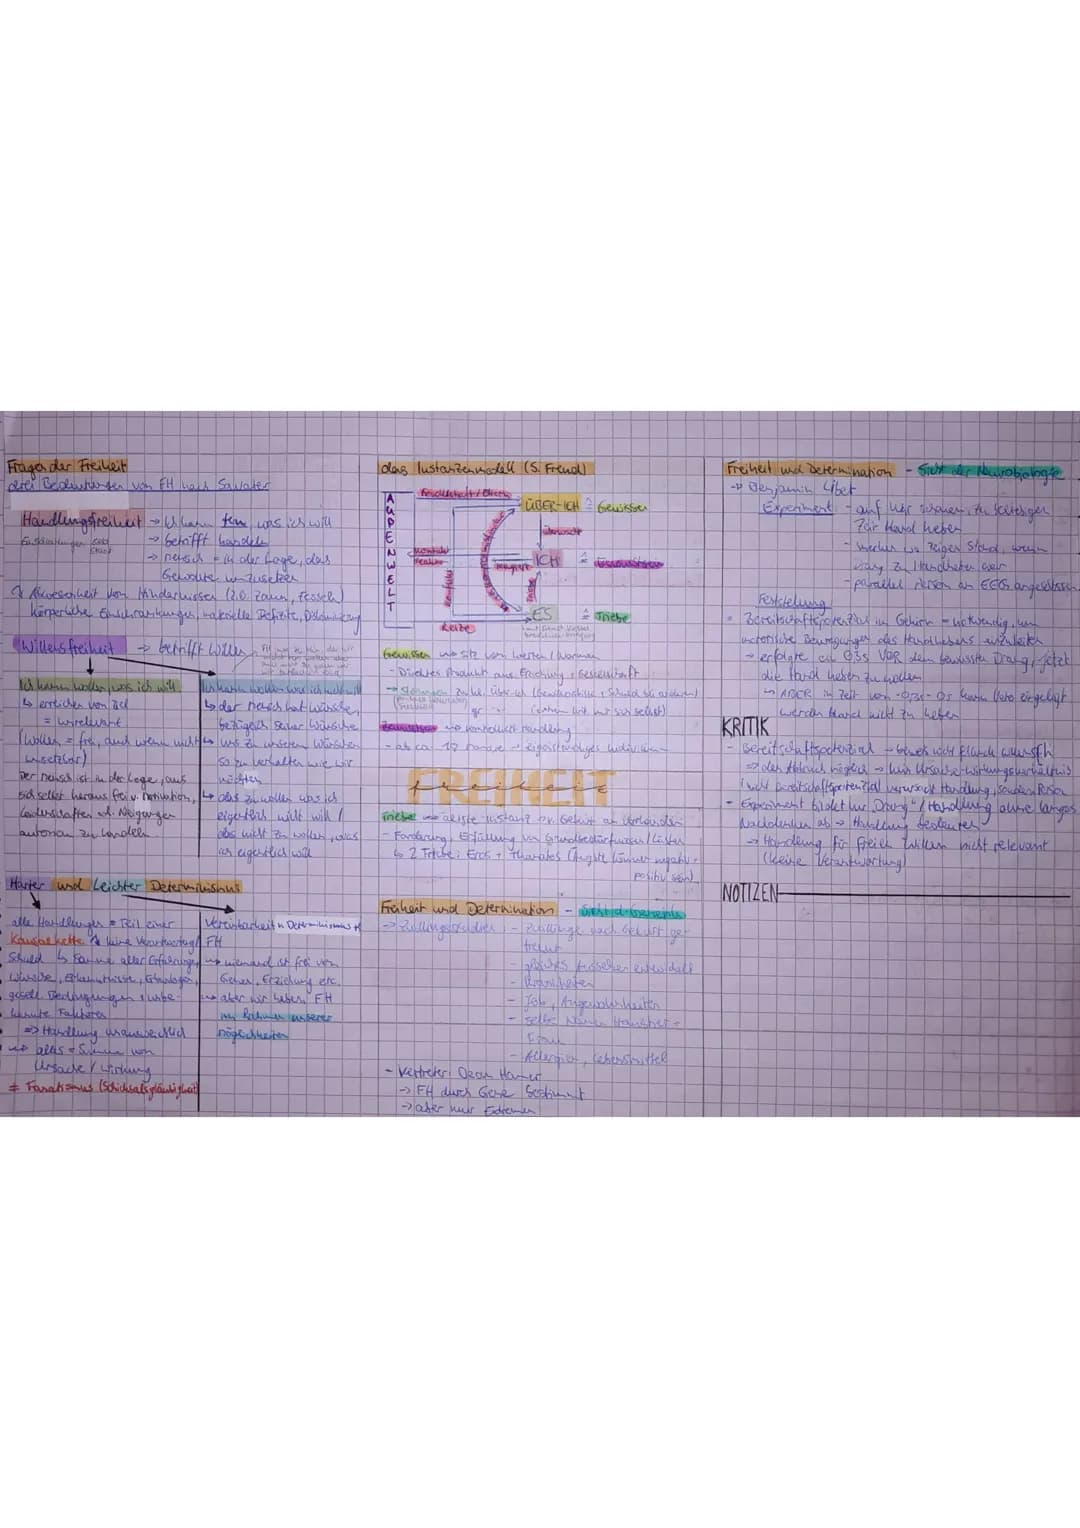 Fragen der Freiheit
drei Bedeutungen von FH nach Savater
Handlungsfreiheit → Ich kann tun, was ich will
→ betrifft handeln
→ Mensch = in der Lage, das
Gewollte umzusetzen
Abwesenheit von Hindernissen (z.B. Zaun, Fesseln)
körperliche Einschränkungen, materielle Defizite,
Willensfreiheit → betrifft Willen
Ich kann wollen, was ich will
↳ erreichen von Ziel
= irrelevant
(Wollen = frei, auch wenn nicht
umsetzbar)
Der Mensch ist in der Lage, aus
sich selbst heraus frei v. Motivation,
Leidenschaften und Neigungen
autonom zu handeln
Ich kann wollen was ich
↳ der Mensch hat Wünsche
bezüglich seiner Wünsche
↳ uns zu unseren Wünschen
so zu verhalten wie wir
möchten
↳ das zu wollen was ich
eigentlich nicht will /
das nicht zu wollen, was
ich eigentlich will
Harter und Leichter Determinismus
alle Handlungen = Teil einer
Kausalkette keine Verantwortung/
Schuld ↳ Summe aller Erfahrungen,
Wünsche, Erkenntnisse,
gesell. Bedingungen, unbe-
kannte Faktoren
=> Handlung unausweichlich
alles = Summe von
Ursache / Wirkung
≠ Fanatismus (Schicksalsgläubigkeit)
Vereinbarkeit v. Determinismus +
FH
niemand ist frei von
Genen, Erziehung etc.
aber wir haben FH
im Rahmen unserer
Möglichkeiten
das Instanzenmodell (S. Freud)
AUßENWELT
ÜBER-ICH ≙ Gewissen
ICH ≙ Bewusstsein
ES ≙ Triebe
Reize
Gewissen Sitz von Werten / Normen
- Direktes Produkt aus Erziehung, Gesellschaft
Bewusstsein kontrolliert Handlung
FREIHEIT
freiheit
Triebe älteste Instanz
- Forderung, Erfüllung von Grundbedürfnissen / Lüsten
↳ 2 Triebe: Eros + Thanatos (Ängste können negativ +
positiv sein)
Freiheit und Determination - Sicht d. Genetik
→ Zwillingsstudien - Zwillinge nach Geburt ge-
trennt
- Krankheiten
- Job, Angewohnheiten
- selbe Namen Haustier +
Frau
- Allergien, Lebensmittel
- Vertreter: Dean Hamer
→ FH durch Gene bestimmt
→ aber nur Extremen
Freiheit und Determination - Sicht der Neurobiologie
→ Benjamin Libet
Experiment - auf Uhr schauen, zu
für Hand heben
- merken wo Zeiger stand, wenn
Drang zu Handheben war
- parallel Person an EEGs angeschlossen
Feststellung
- Bereitschaftspotenzial im Gehirn = notwendig, um
motorische Bewegungen des Handhebens einzuleiten
→ erfolgte ca. 0,35s VOR dem bewussten Drang, jetzt
die Hand heben zu wollen
↳ ABER in Zeit von -0,2s - 0s kann Veto eingelegt
werden Hand nicht zu heben
KRITIK
- Bereitschaftspotenzial - beweist nicht
=> der Abbruch möglich → kein Ursache-Wirkungsverhältnis
(nicht Bereitschaftspotenzial verursacht Handlung, sondern Person
- Experiment bildet nur "Drang" / Handlung ohne langes
Nachdenken ab → Handlung bedeutet
→ Handlung für freien Willen nicht relevant
(keine Verantwortung)
NOTIZEN